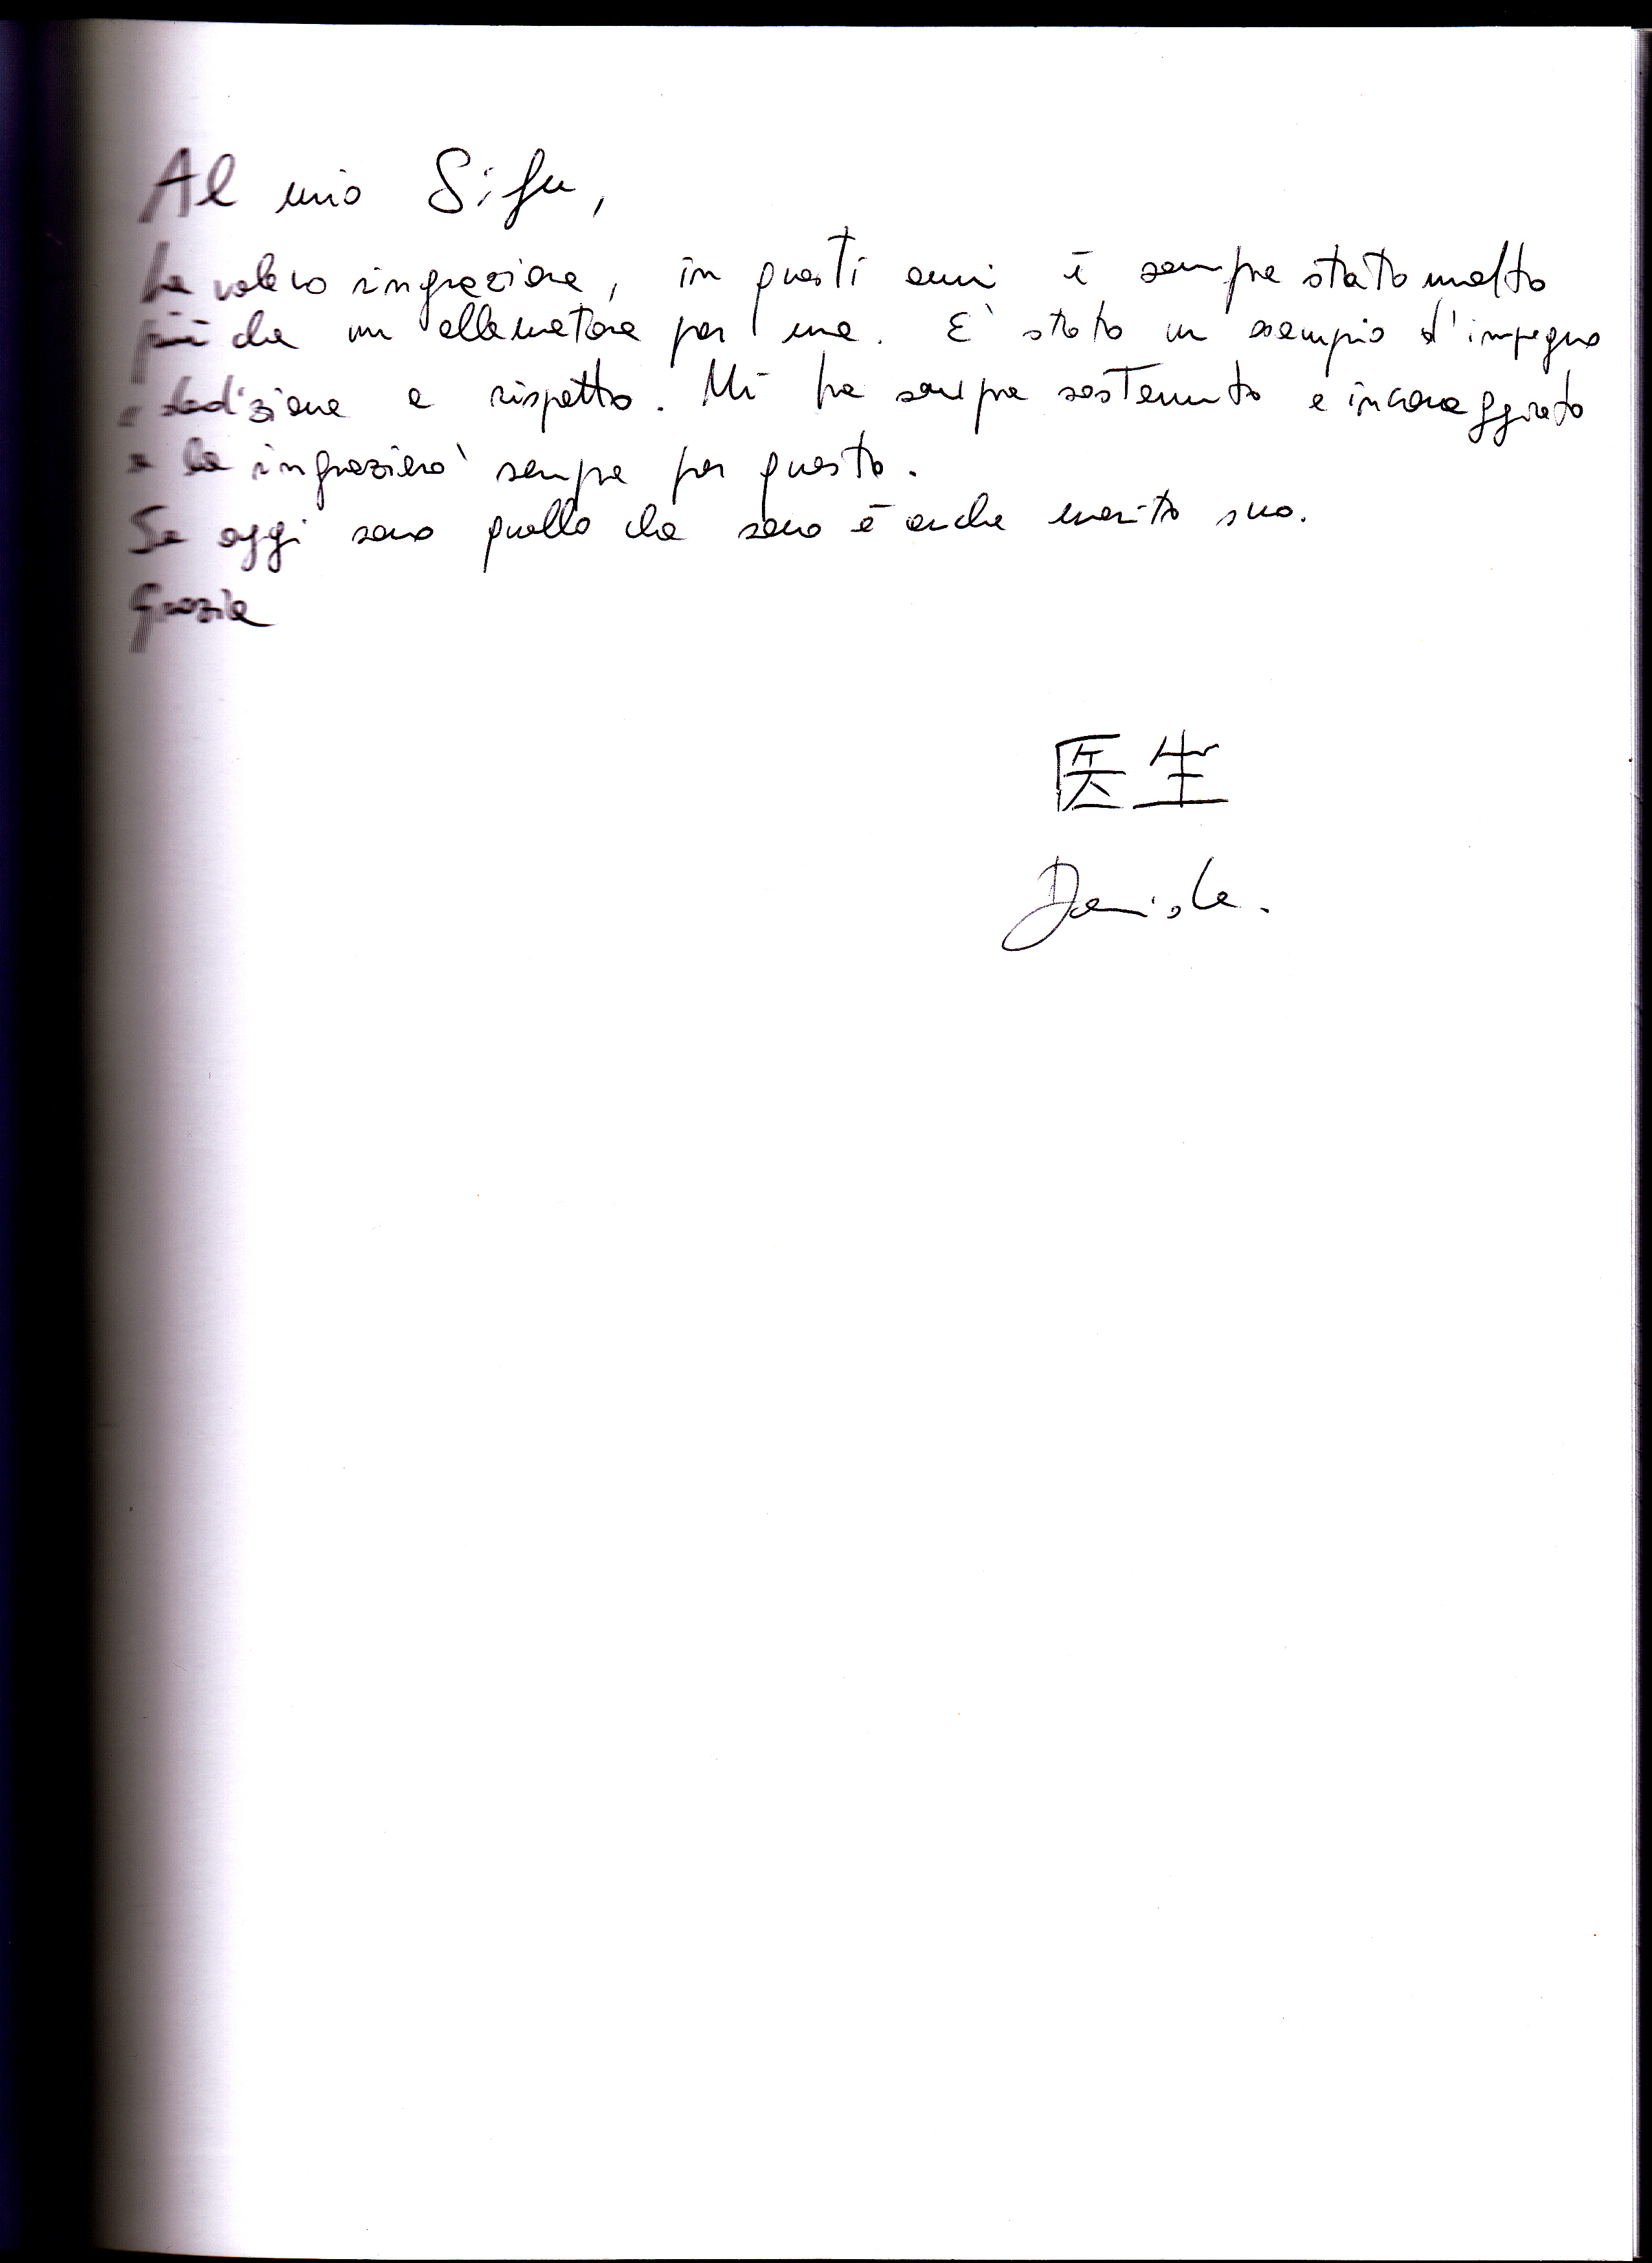 Al mio Sifu,
La volevo ringraziare, in questi anni è sempre stato molto
più che un allenatore per me. E' stato un esempio d'impegno
e dedizione e rispetto. Mi ha sempre sostenuto e incoraggiato
e la ringrazierò sempre per questo.
Se oggi sono quello che sono è anche merito suo.
Grazie
医生
Daniele.